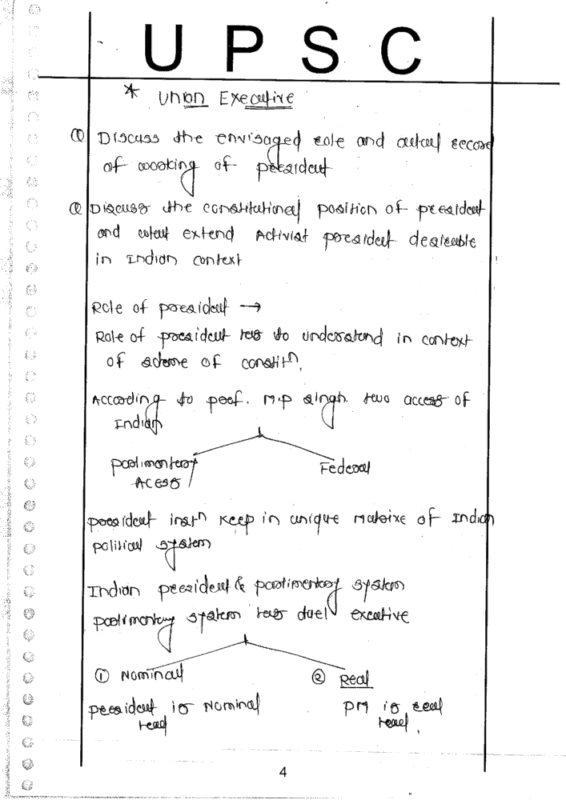 UPSC
* Union Executive
① Discuss the envisaged role and actual record
of working of president
② Discuss the constitutional position of president
and what extend Activist president desirable
in Indian context
Role of president →
Role of president has to understand in context
of scheme of constitⁿ.
According to prof. M.p singh two access of
Indian
parlimentary Federal
Access
president instⁿ keep in unique Matrixe of Indian
political system
Indian president & parlimentary system
parlimentary system has duel executive
① Nominal ② Real
president is Nominal PM is real
head head.
4